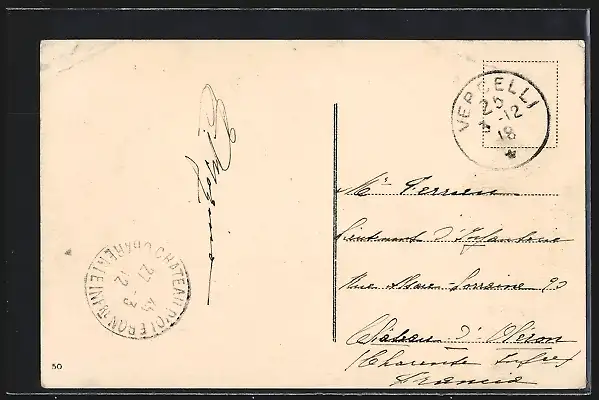 VERCELLI
25
-12
18
Mr Perrien
Lieutenant d'Infanterie
Rue Alsace Lorraine 90
Château d'Oléron
(Charente Infre)
Francia
CHATEAU D'OLERON
CHARENTE INFRE
27
12
50